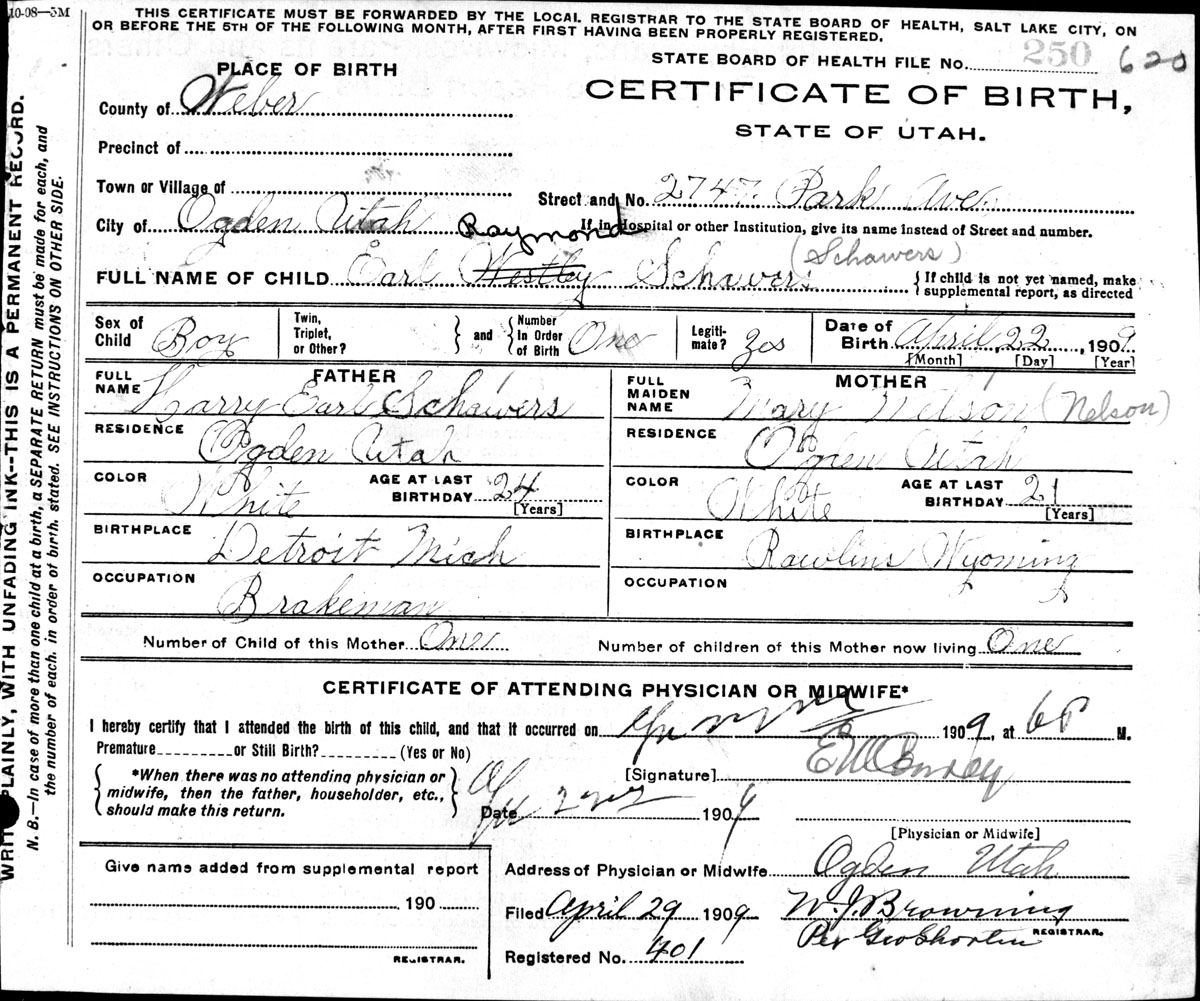 10-08—5M
THIS CERTIFICATE MUST BE FORWARDED BY THE LOCAL REGISTRAR TO THE STATE BOARD OF HEALTH, SALT LAKE CITY, ON
OR BEFORE THE 5TH OF THE FOLLOWING MONTH, AFTER FIRST HAVING BEEN PROPERLY REGISTERED.
STATE BOARD OF HEALTH FILE No. 250 620
PLACE OF BIRTH
CERTIFICATE OF BIRTH,
County of Weber
STATE OF UTAH.
Precinct of
Town or Village of
Street and No. 2747 Park Ave
City of Ogden Utah
If in Hospital or other Institution, give its name instead of Street and number.
Raymond (Schawers)
FULL NAME OF CHILD Earl Westley Schawers
{If child is not yet named, make
supplemental report, as directed
Sex of Child Boy
Twin, Triplet, or Other?
and
Number in Order of Birth One
Legiti-mate? Yes
Date of Birth April 22, 1909
[Month] [Day] [Year]
FATHER
FULL NAME Harry Earl Schawers
MOTHER
FULL MAIDEN NAME Mary Nelson (Nelson)
RESIDENCE Ogden Utah
RESIDENCE Ogden Utah
COLOR White
AGE AT LAST BIRTHDAY 24 [Years]
COLOR White
AGE AT LAST BIRTHDAY 21 [Years]
BIRTHPLACE Detroit Mich
BIRTHPLACE Rawlins Wyoming
OCCUPATION Brakeman
OCCUPATION
Number of Child of this Mother One
Number of children of this Mother now living One
CERTIFICATE OF ATTENDING PHYSICIAN OR MIDWIFE*
I hereby certify that I attended the birth of this child, and that it occurred on 1909, at 6 P M.
Premature or Still Birth? (Yes or No)
*When there was no attending physician or
midwife, then the father, householder, etc.,
should make this return.
[Signature]
Date 1909
[Physician or Midwife]
Give name added from supplemental report
190
REGISTRAR.
Address of Physician or Midwife Ogden Utah
Filed April 29 1909 W. J. Browning
REGISTRAR.
Per Geo Shorten
Registered No. 401
WRITE PLAINLY, WITH UNFADING INK--THIS IS A PERMANENT RECORD.
N. B.—In case of more than one child at a birth, a SEPARATE RETURN must be made for each, and
the number of each, in order of birth, stated. SEE INSTRUCTIONS ON OTHER SIDE.